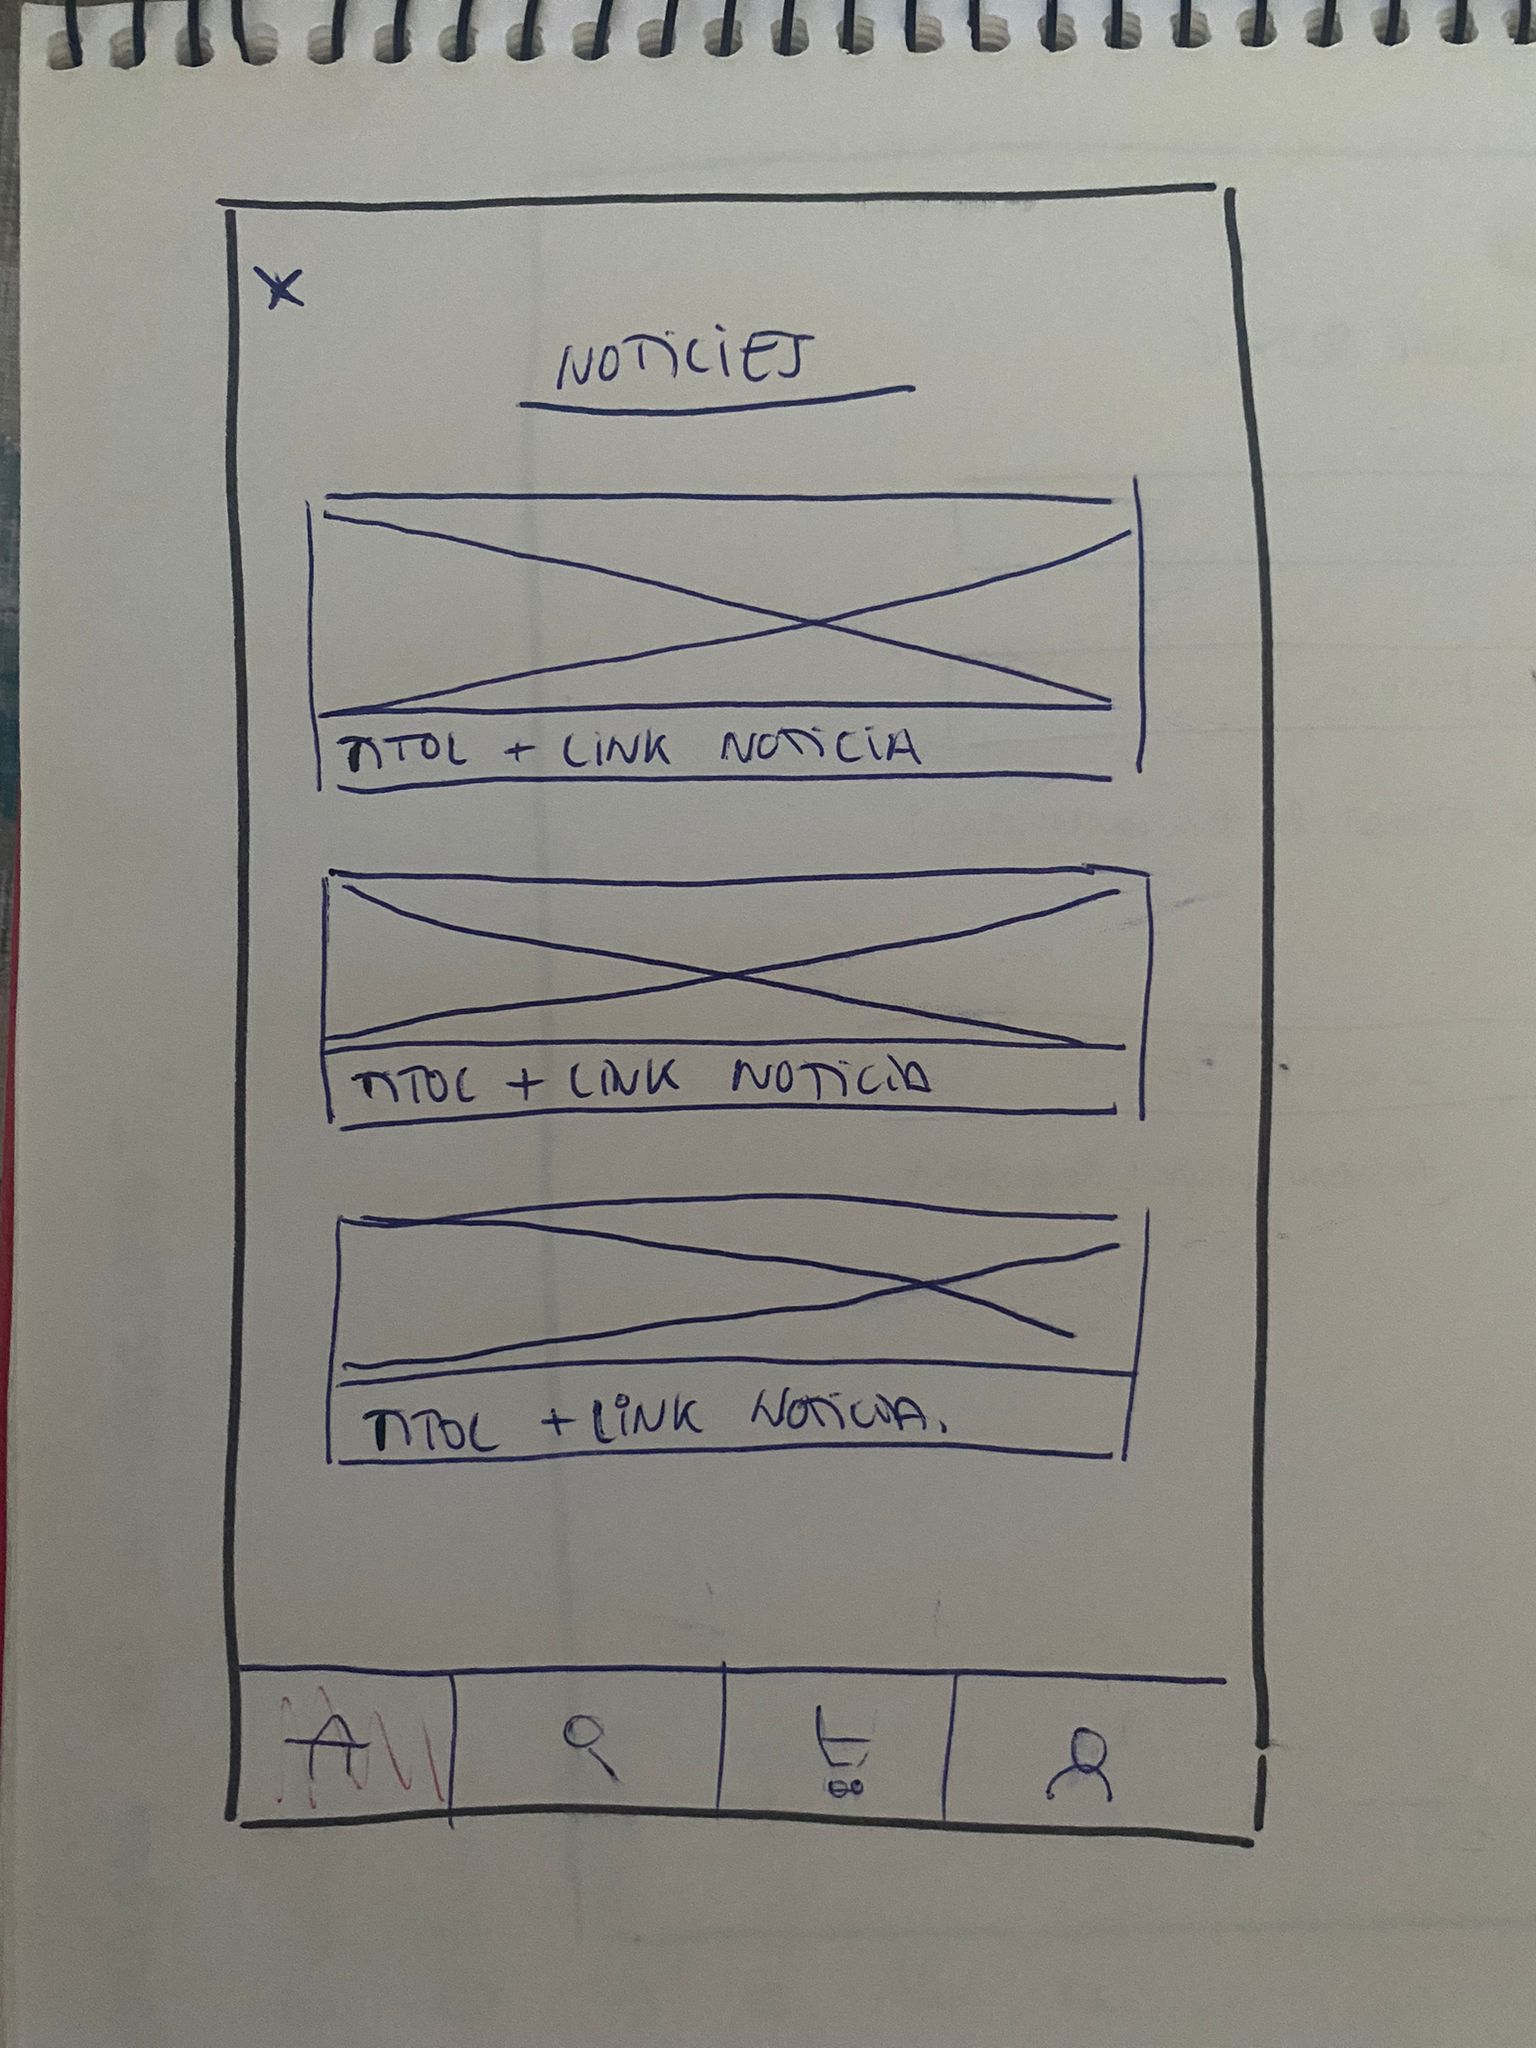 X
NOTICIES
TITOL + LINK NOTICIA
TITOL + LINK NOTICIA
TITOL + LINK NOTICIA.